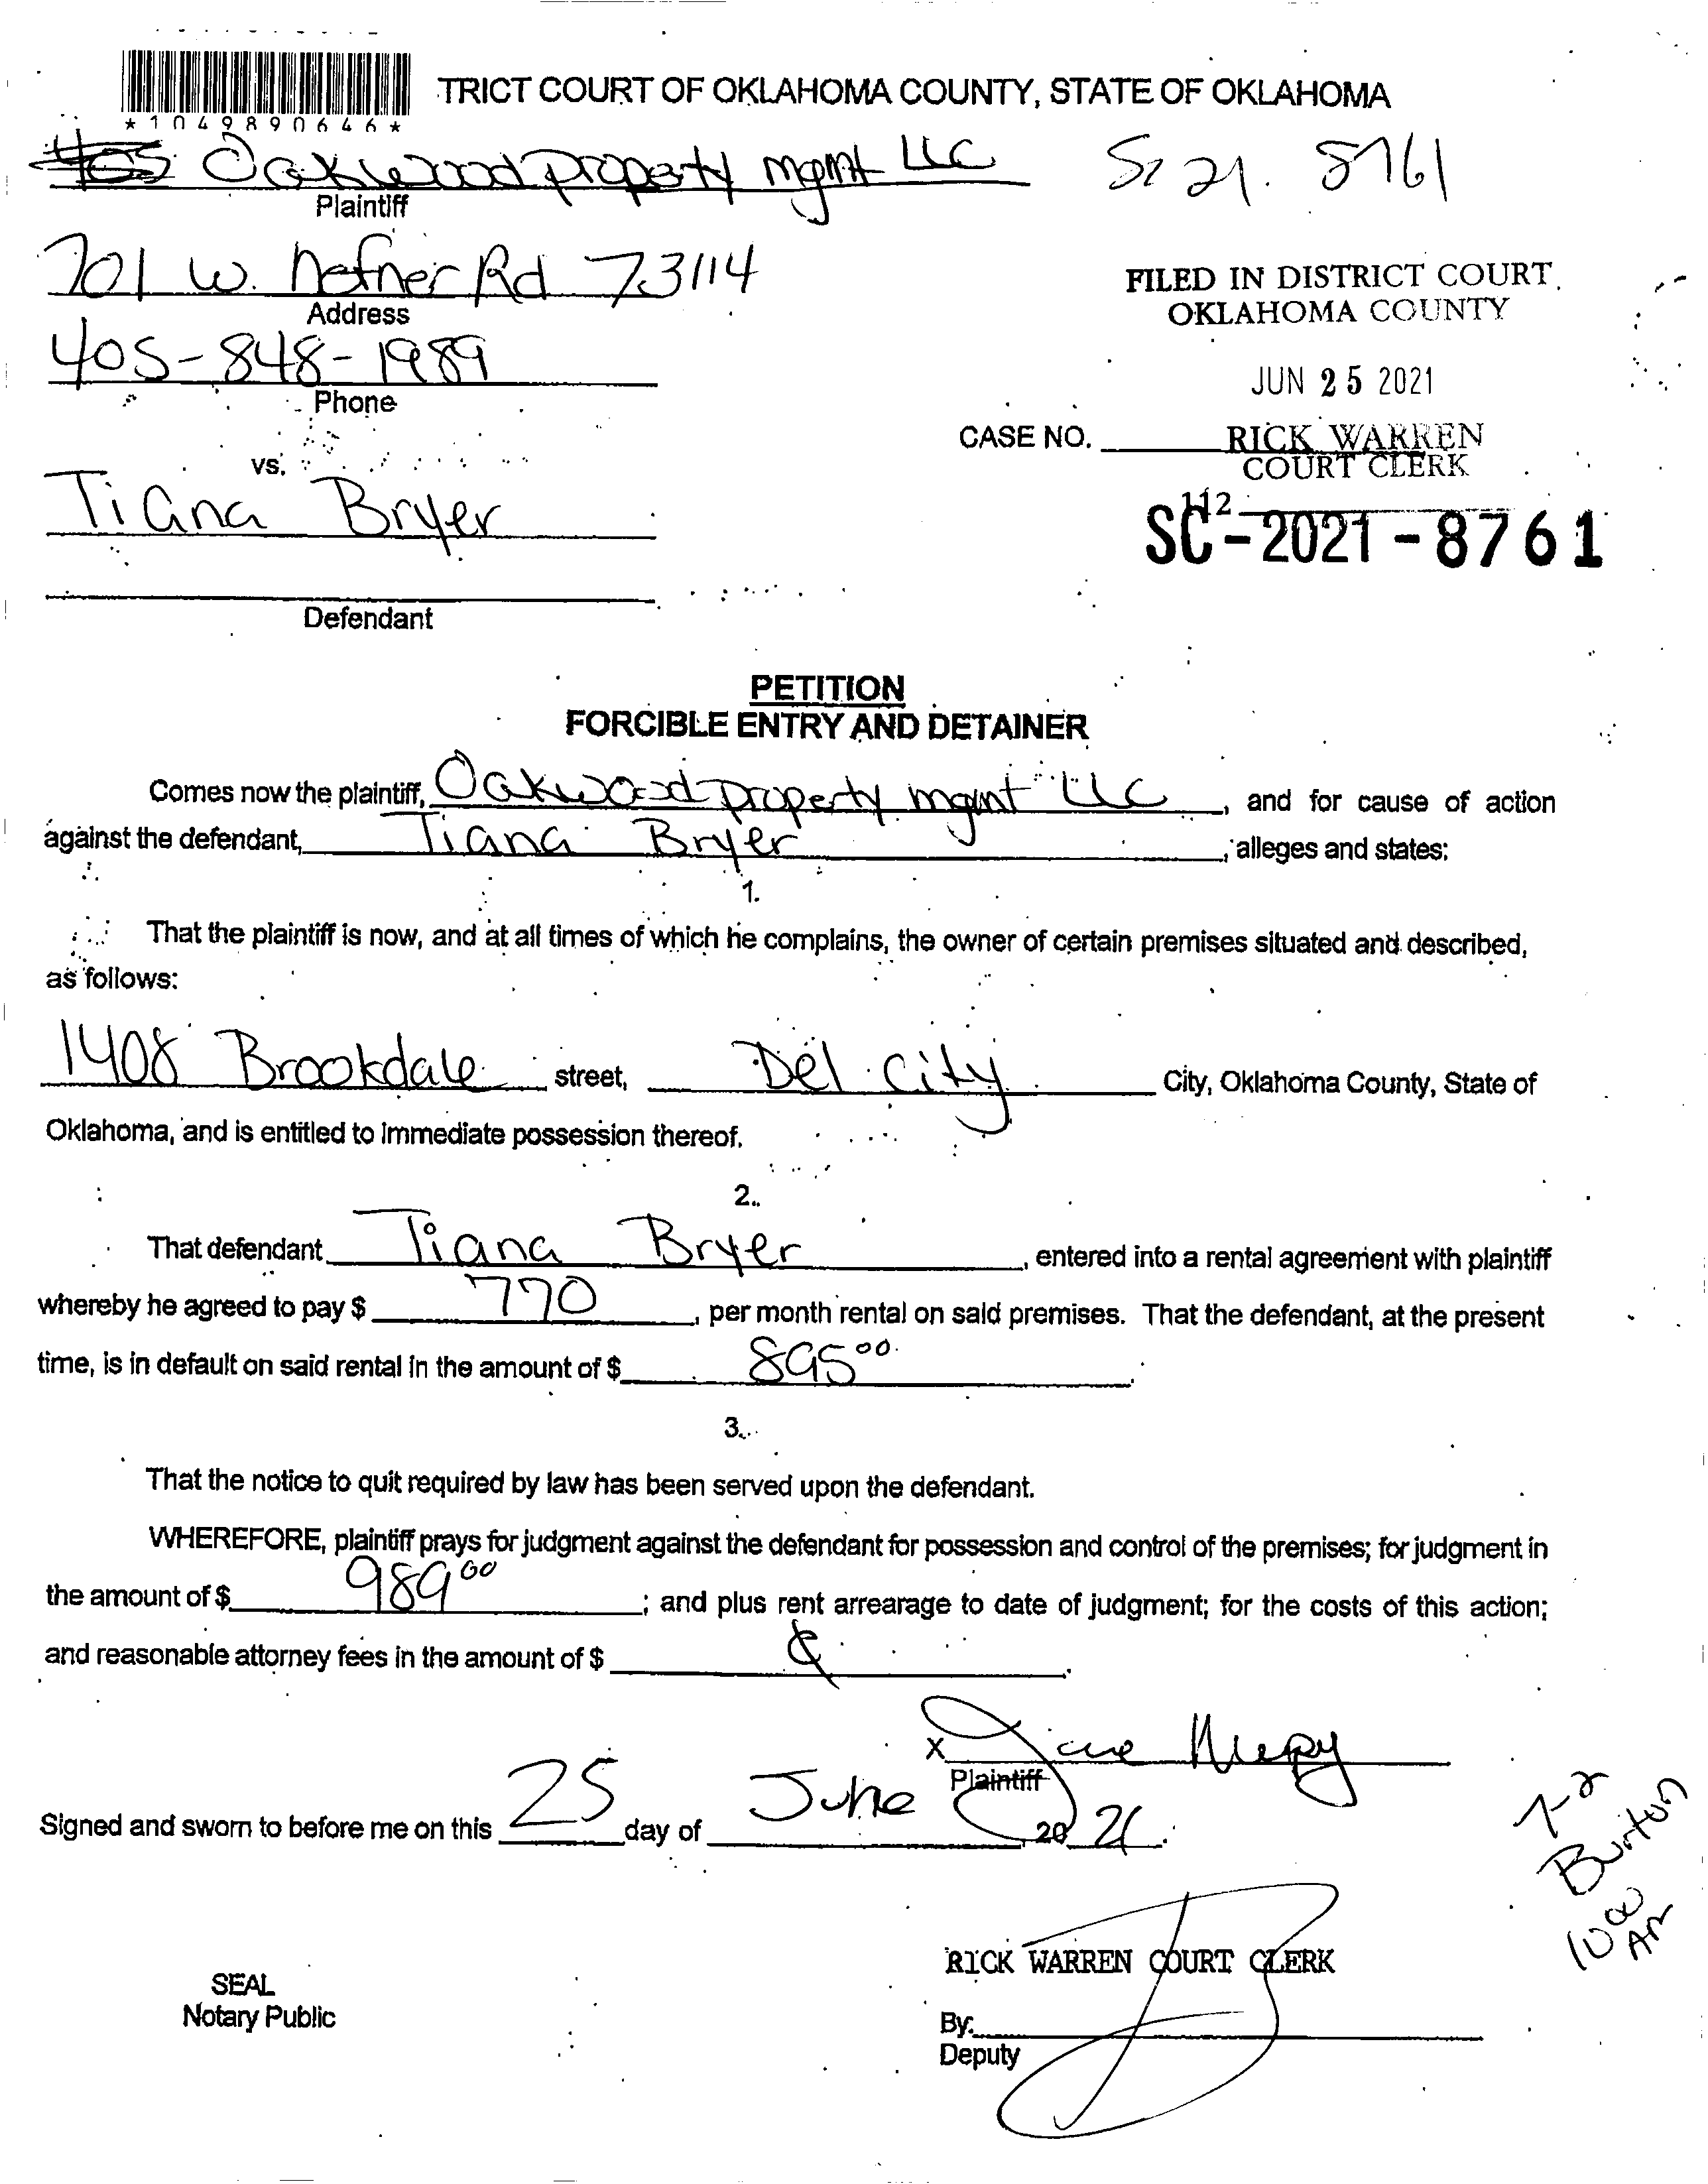 TRICT COURT OF OKLAHOMA COUNTY, STATE OF OKLAHOMA
*1049890646*
405 Oakwood property mgmt LLC
Sc 21. 8761
Plaintiff
701 W. Hefner Rd 73114
Address
FILED IN DISTRICT COURT
OKLAHOMA COUNTY
405-848-1989
Phone
JUN 25 2021
CASE NO.
RICK WARREN
COURT CLERK
112
vs.
Tiana Bryer
SC-2021-8761
Defendant
PETITION
FORCIBLE ENTRY AND DETAINER
Comes now the plaintiff, Oakwood property mgmt LLC, and for cause of action
against the defendant, Tiana Bryer, alleges and states:
1.
That the plaintiff is now, and at all times of which he complains, the owner of certain premises situated and described,
as follows:
1408 Brookdale street, Del City City, Oklahoma County, State of
Oklahoma, and is entitled to immediate possession thereof.
2.
That defendant Tiana Bryer, entered into a rental agreement with plaintiff
whereby he agreed to pay $ 770, per month rental on said premises. That the defendant, at the present
time, is in default on said rental in the amount of $ 895 00.
3.
That the notice to quit required by law has been served upon the defendant.
WHEREFORE, plaintiff prays for judgment against the defendant for possession and control of the premises; for judgment in
the amount of $ 989 00; and plus rent arrearage to date of judgment; for the costs of this action;
and reasonable attorney fees in the amount of $
X
Plaintiff
Signed and sworn to before me on this 25 day of June, 20 21.
7-2
Burton
10 00
AM
RICK WARREN COURT CLERK
SEAL
Notary Public
By:
Deputy